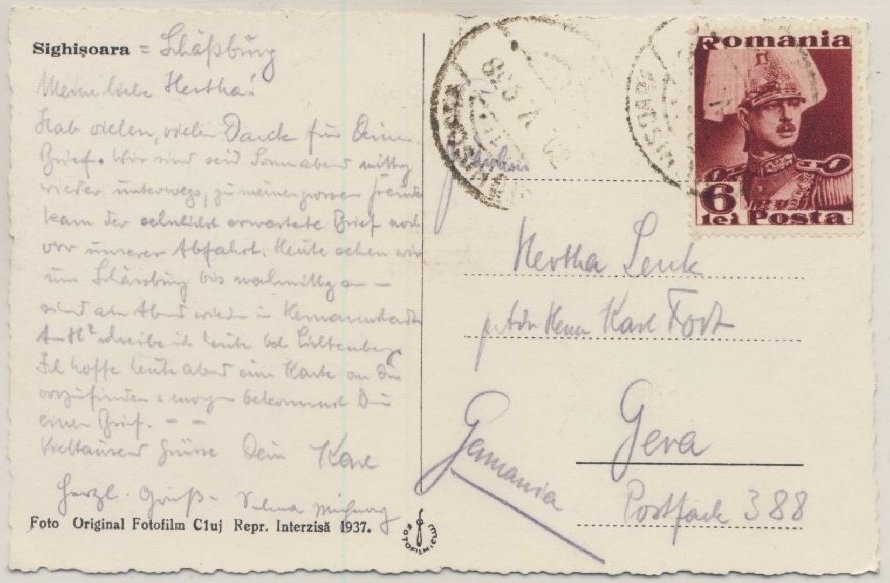 Sighișoara = Schäßburg
Meine liebe Hertha!
Hab vielen, vielen Dank für Deinen
Brief. Wir sind seid Sonnabend mittag
wieder unterwegs, zu meiner grossen Freude
kam der sehnlichst erwartete Brief noch
vor unserer Abfahrt. Heute sehen wir
uns Schässburg bis nachmittg an –
sind am Abend wieder in Hermannstadt
schreibe ich heute
Ich hoffe heute abend eine Karte an Dir
vorzufinden u. morgen bekommst Du
einen Brief. – –
Vieltausend Grüsse Dein Karl
Herzl. Gruß.
Foto Original Fotofilm Cluj Repr. Interzisă 1937.
FOTOFILM CLUJ
Romania
6
lei Posta
SIGHISOARA
Hertha Lenk
p. Adr. Herrn Karl Fort
Gera
Germania
Postfach 388